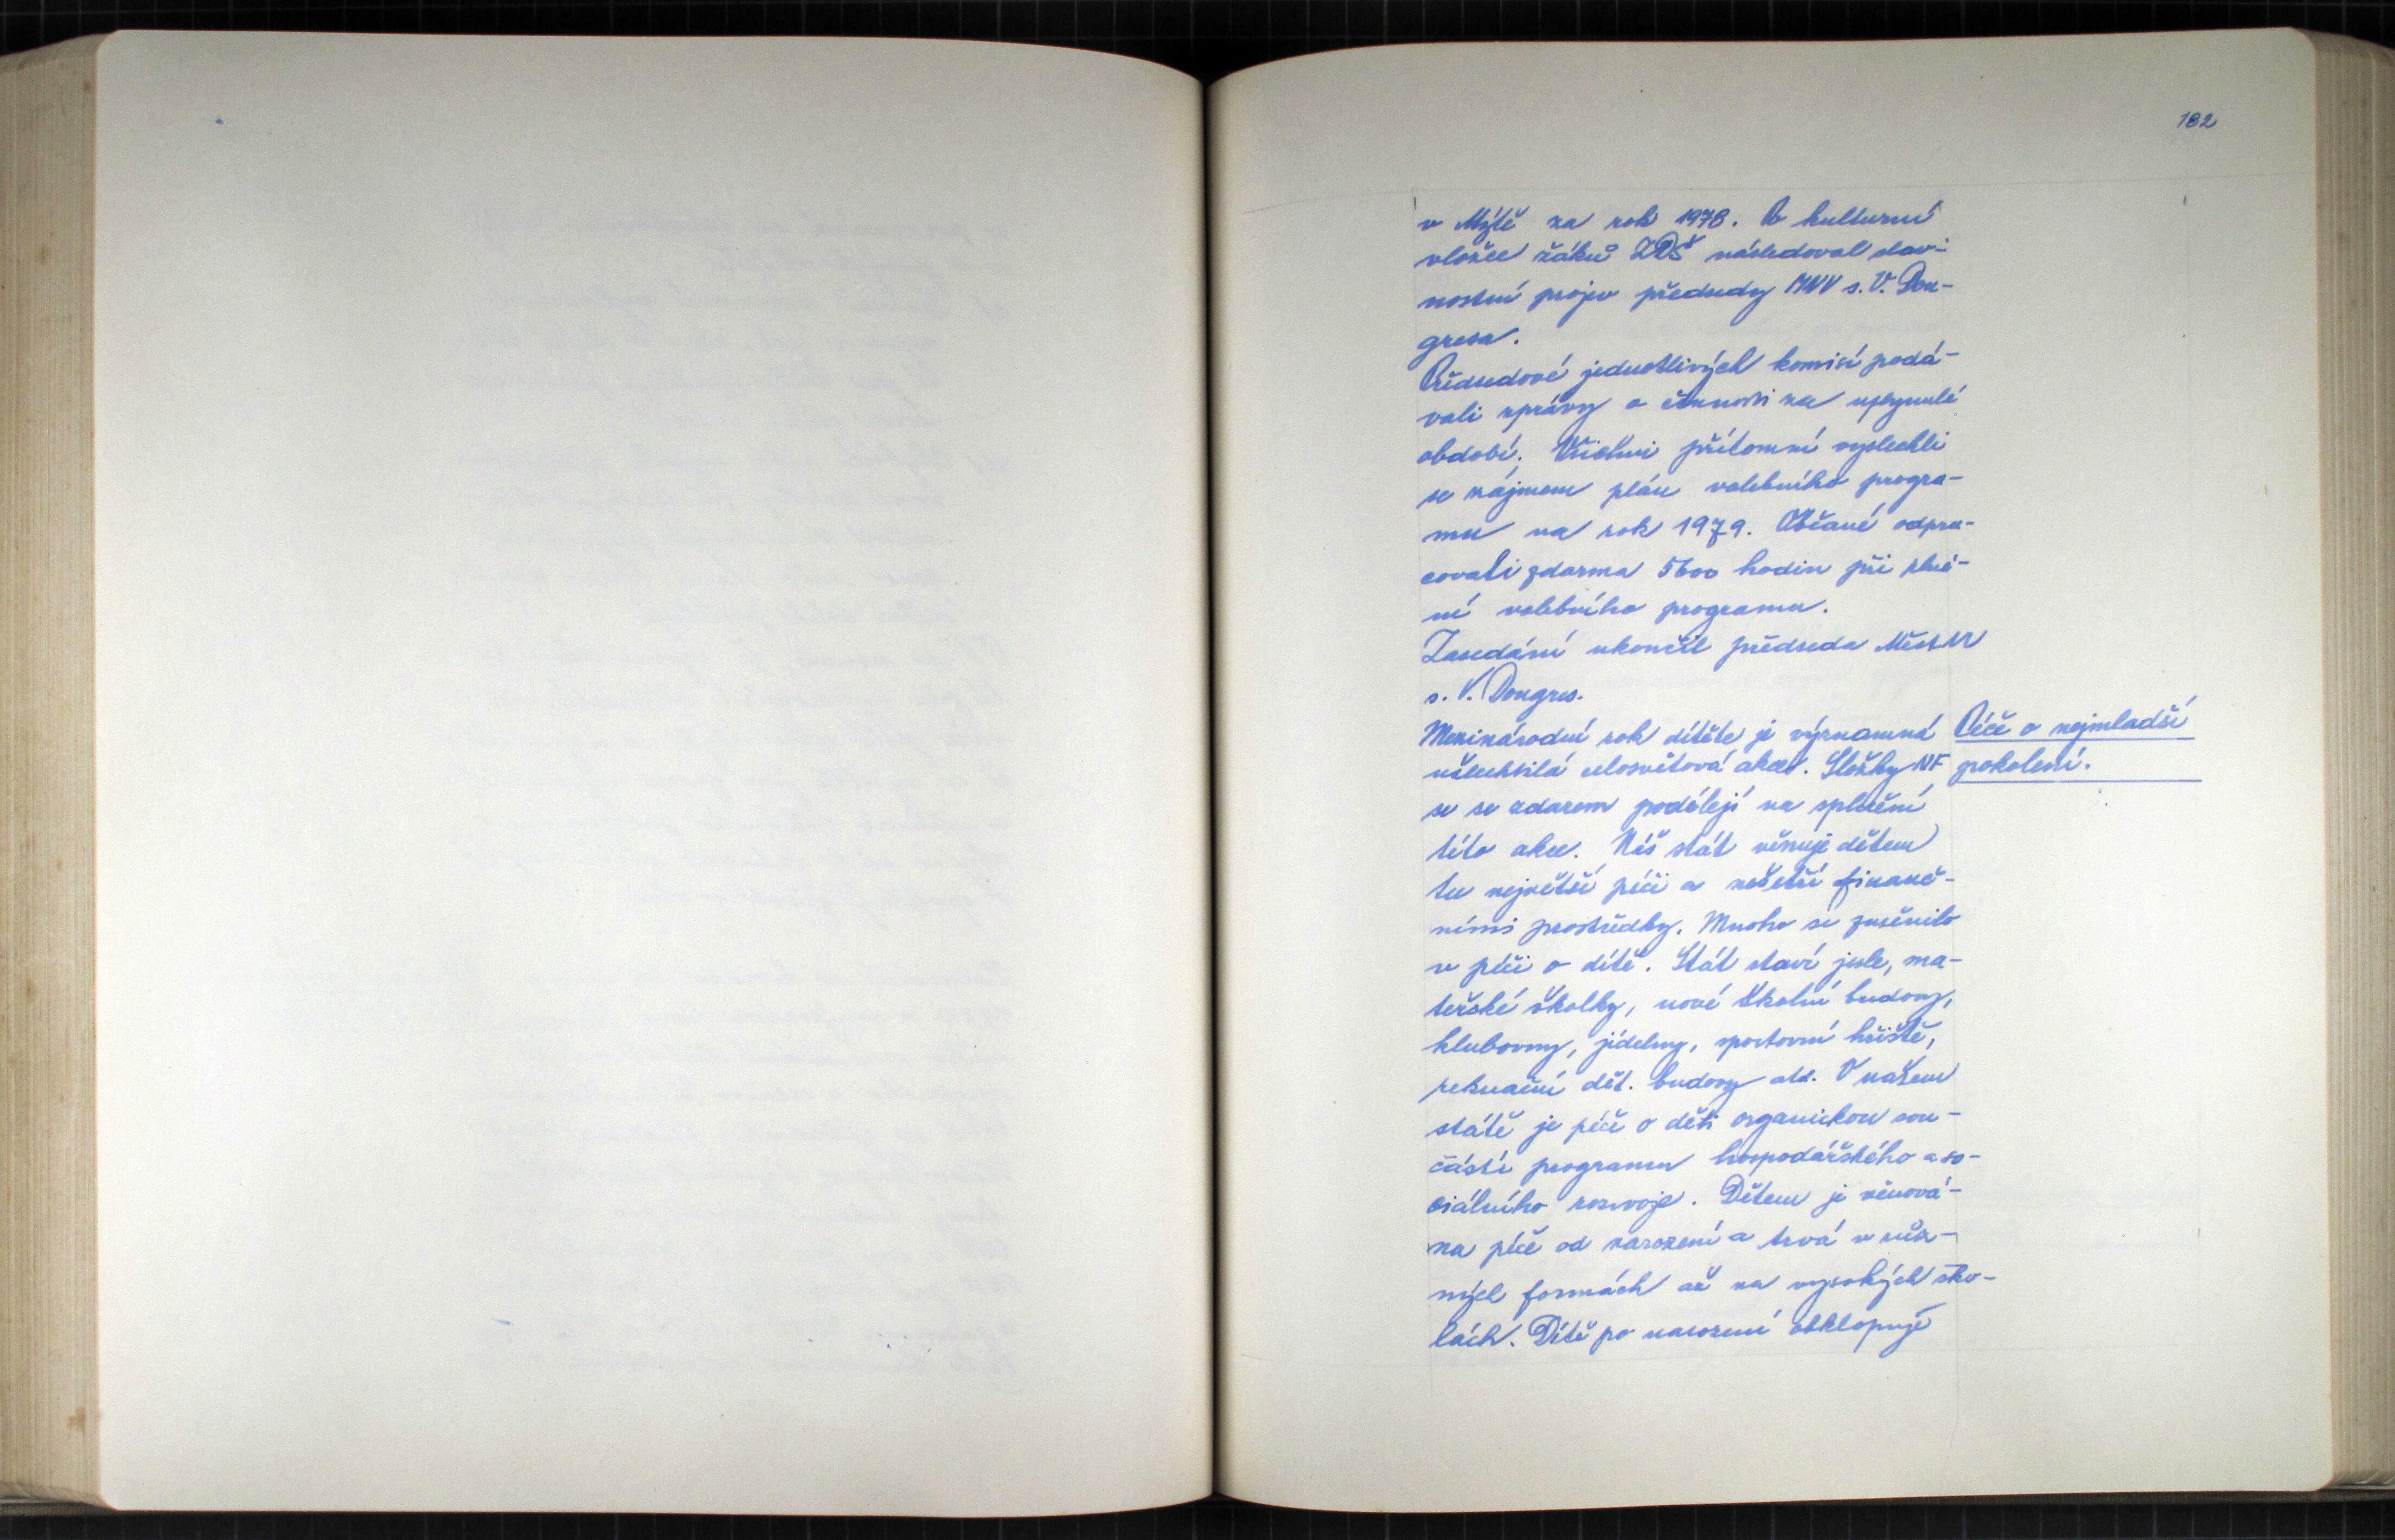 182
v Mýtě za rok 1978. Po kulturní
vložce žáků ZDŠ následoval slav-
nostní projev předsedy MNV s. V. Don-
gresa.
Předsedové jednotlivých komisí podá-
vali zprávy o činnosti za uplynulé
období. Všichni přítomní vyslechli
se zájmem plán volebního progra-
mu na rok 1979. Občané odpra-
covali zdarma 5600 hodin při plně-
ní volebního programu.
Zasedání ukončil předseda MěstNV
s. V. Dongres.
Mezinárodní rok dítěte je významná
ušlechtilá celosvětová akce. Složky NF
se se zdarem podílejí na splnění
této akce. Náš stát věnuje dětem
tu největší péči a nešetří finanč-
ními prostředky. Mnoho se změnilo
v péči o dítě. Stát staví jesle, ma-
teřské školky, nové školní budovy,
klubovny, jídelny, sportovní hřiště,
rekreační dět. budovy atd. V našem
státě je péče o děti organickou sou-
částí programu hospodářského a so-
ciálního rozvoje. Dětem je věnová-
na péče od narození a trvá v růz-
ných formách až na vysokých ško-
lách. Dítě po narození obklopuje
Péče o nejmladší
pokolení.